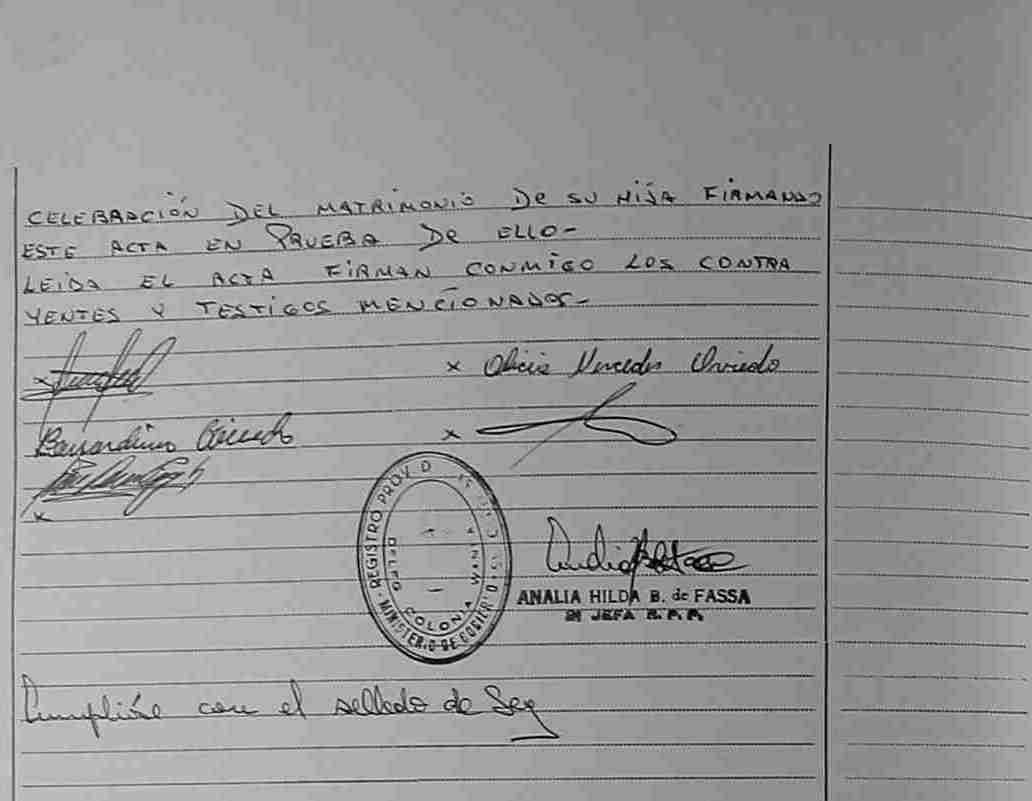 CELEBRACIÓN DEL MATRIMONIO DE SU HIJA FIRMANDO
ESTE ACTA EN PRUEBA DE ELLO-
LEIDA EL ACTA FIRMAN CONMIGO LOS CONTRA
YENTES Y TESTIGOS MENCIONADOS-
x
x Alicia Mercedes Oviedo
x
x
REGISTRO PROV. D
MINISTERIO DE GOBIERNO
COLONIA WANDA
ANALIA HILDA B. de FASSA
JEFA R. P. P.
Cumplióse con el sellado de Ley